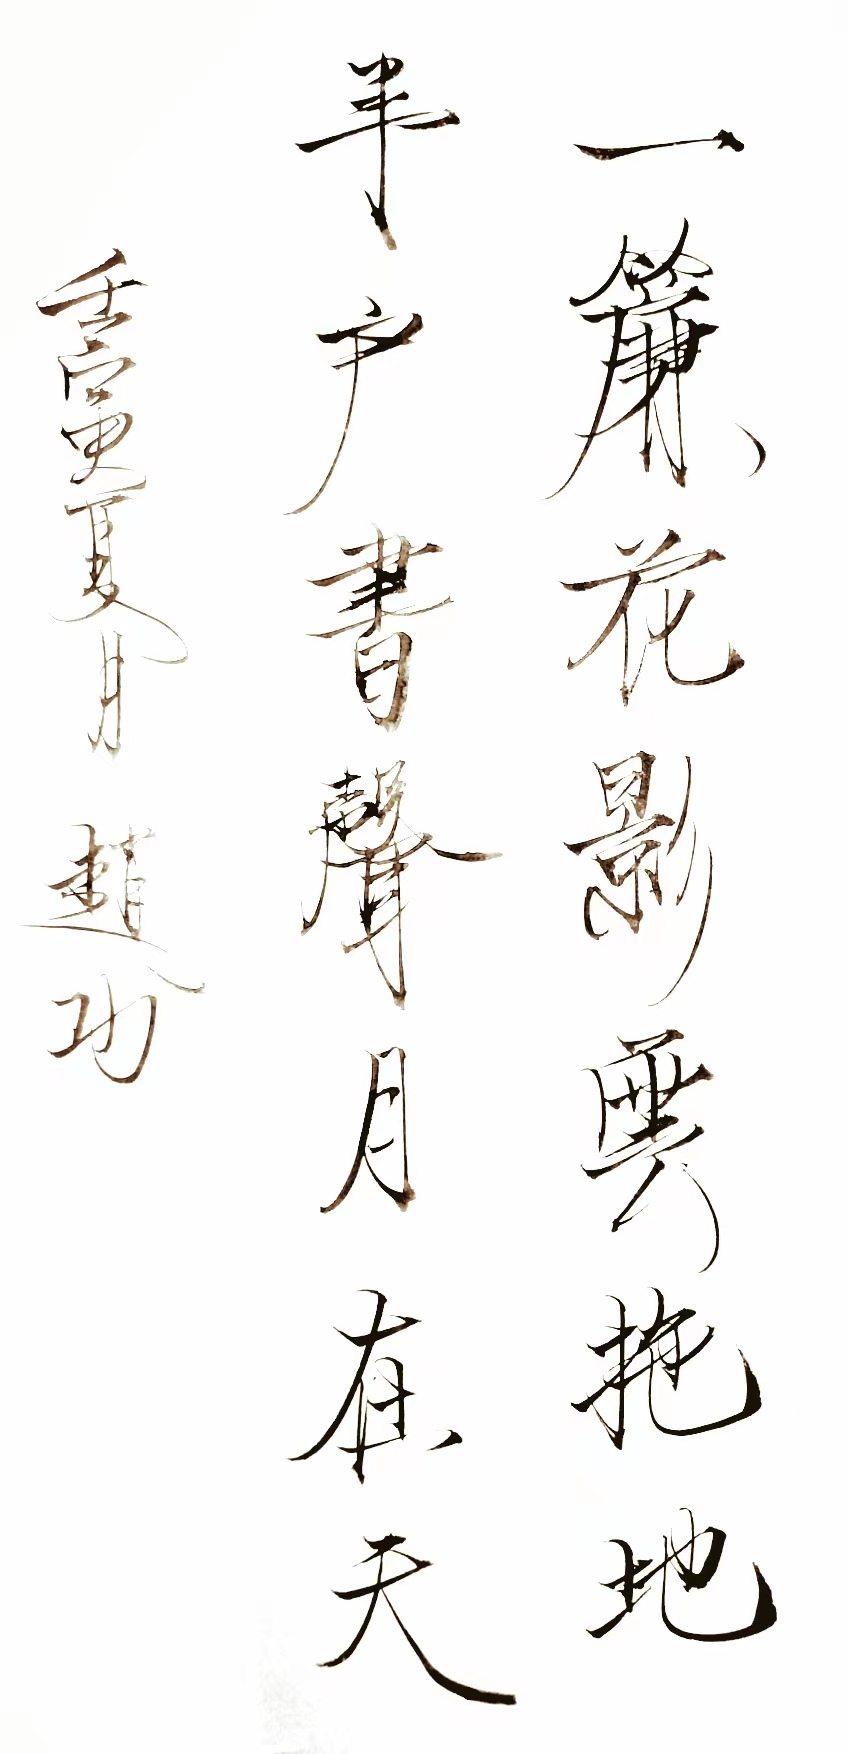 一簾花影雲拖地
半户書聲月在天
壬寅夏月 趙功